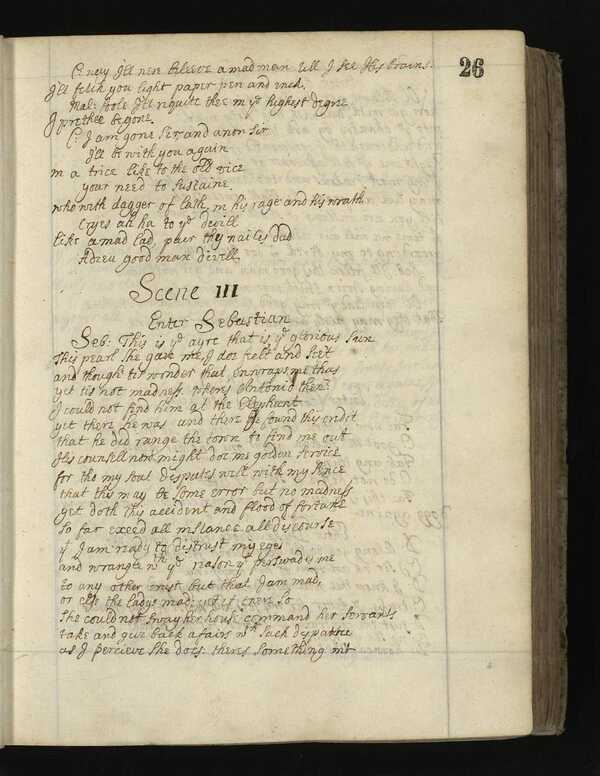 26
C: nay I'll nere beleeve a mad man till I see his brains.
I'll fetch you light paper pen and inck.
Mal: foole I'll requite thee in yᵉ highest degree
I prethee be gone.
C: I am gone Sir and anon Sir
I'll be with you again
in a trice like to the old vice
your need to sustaine.
who with dagger of lath, in his rage and his wrath
Cryes ah ha to yᵉ devill
like a mad lad, paer thy nailes dad
Adieu good man devill.
Scene III
Enter Sebastian
Seb: This is yᵉ ayre that is yᵉ glorious Sun
This pearl she gave me, I doe feelt and see't
and though tis wonder that enwraps me thus
yet tis not madness. wheres Antonio then:
I could not find him at the Elephant
yet there he was and there I found this credit
that he did range the town to find me out
His counsell now might doe me golden service
for tho my soul disputes well with my sence
that this may be some error but no madness
yet doth this accident and flood of fortune
so far exceed all instance all discourse
yᵗ I am ready to distrust my eyes
and wrangle wᵗʰ yᵉ reason yᵗ perswades me
to any other but that I am mad,
or else the ladys mad: yet if twere so
she could not sway her house command her servants
take and give back afairs wᵗʰ such dispatch
as I percieve she dos: theres something in't